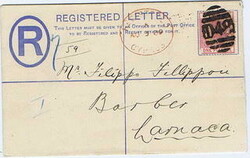 REGISTERED LETTER.
THIS LETTER MUST BE GIVEN TO AN OFFICER OF THE POST OFFICE
TO BE REGISTERED AND A RECEIPT OBTAINED FOR IT.
R
59
Mr. Filippo Fillippou
Barber
Larnaca
942